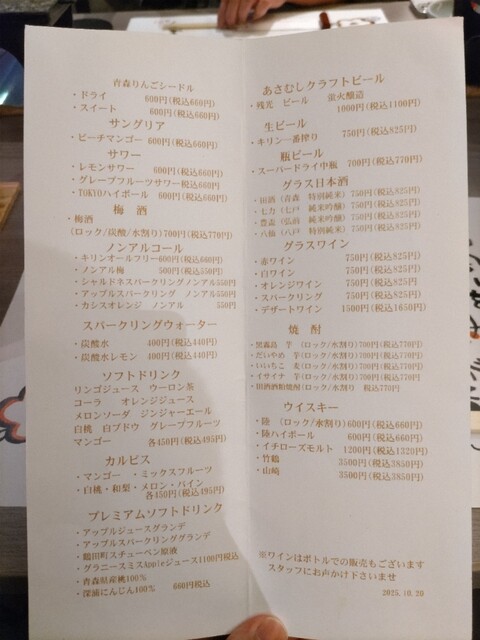 青森りんごシードル
・ドライ 600円(税込660円)
・スイート 600円(税込660円)
サングリア
・ピーチマンゴー 600円(税込660円)
サワー
・レモンサワー 600円(税込660円)
・グレープフルーツサワー600円(税込660円)
・TOKYOハイボール 600円(税込660円)
梅 酒
・梅酒
(ロック/炭酸/水割り)700円(税込770円)
ノンアルコール
・キリンオールフリー600円(税込660円)
・ノンアル梅 500円(税込550円)
・シャルドネスパークリングノンアル550円
・アップルスパークリング ノンアル550円
・カシスオレンジ ノンアル 550円
スパークリングウォーター
・炭酸水 400円(税込440円)
・炭酸水レモン 400円(税込440円)
ソフトドリンク
リンゴジュース ウーロン茶
コーラ オレンジジュース
メロンソーダ ジンジャーエール
白桃 白ブドウ グレープフルーツ
マンゴー 各450円(税込495円)
カルピス
・マンゴー ・ミックスフルーツ
・白桃・和梨・メロン・パイン
各450円(税込495円)
プレミアムソフトドリンク
・アップルジュースグランデ
・アップルスパークリンググランデ
・鶴田町スチューベン原液
・グラニースミスAppleジュース1100円税込
・青森県産桃100%
・深浦にんじん100% 660円税込
あさむしクラフトビール
・残光 ビール 蛍火醸造
1000円(税込1100円)
生ビール
・キリン一番搾り 750円(税込825円)
瓶ビール
・スーパードライ中瓶 700円(税込770円)
グラス日本酒
・田酒(青森 特別純米)750円(税込825円)
・七力(七戸 純米吟醸)750円(税込825円)
・豊盃(弘前 純米吟醸)750円(税込825円)
・八仙(八戸 特別純米)750円(税込825円)
グラスワイン
・赤ワイン 750円(税込825円)
・白ワイン 750円(税込825円)
・オレンジワイン 750円(税込825円)
・スパークリング 750円(税込825円)
・デザートワイン 1500円(税込1650円)
焼 酎
・黒霧島 芋 (ロック/水割り)700円(税込770円)
・だいやめ 芋(ロック/水割り)700円(税込770円)
・いいちこ 麦(ロック/水割り)700円(税込770円)
・イサイナ 芋(ロック/水割り)700円(税込770円)
・田酒酒粕焼酎(ロック/水割り) 税込770円
ウイスキー
・陸 (ロック/水割り)600円(税込660円)
・陸ハイボール 600円(税込660円)
・イチローズモルト 1200円(税込1320円)
・竹鶴 3500円(税込3850円)
・山崎 3500円(税込3850円)
※ワインはボトルでの販売もございます
スタッフにお声かけ下さいませ
2025.10.20